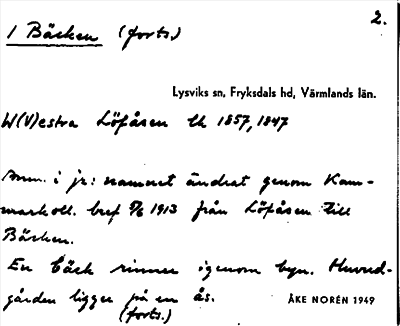 2.
1 Bäcken (forts.)
Lysviks sn, Fryksdals hd, Värmlands län.
W(V)estra Löfåsen Ek 1857, 1847
Anm. i jr: namnet ändrat genom Kam-
markoll. bref 5/6 1913 från Löfåsen till
Bäcken.
En bäck rinner igenom byn. Huvud-
gården ligger på en ås.
(forts.)
ÅKE NORÉN 1949